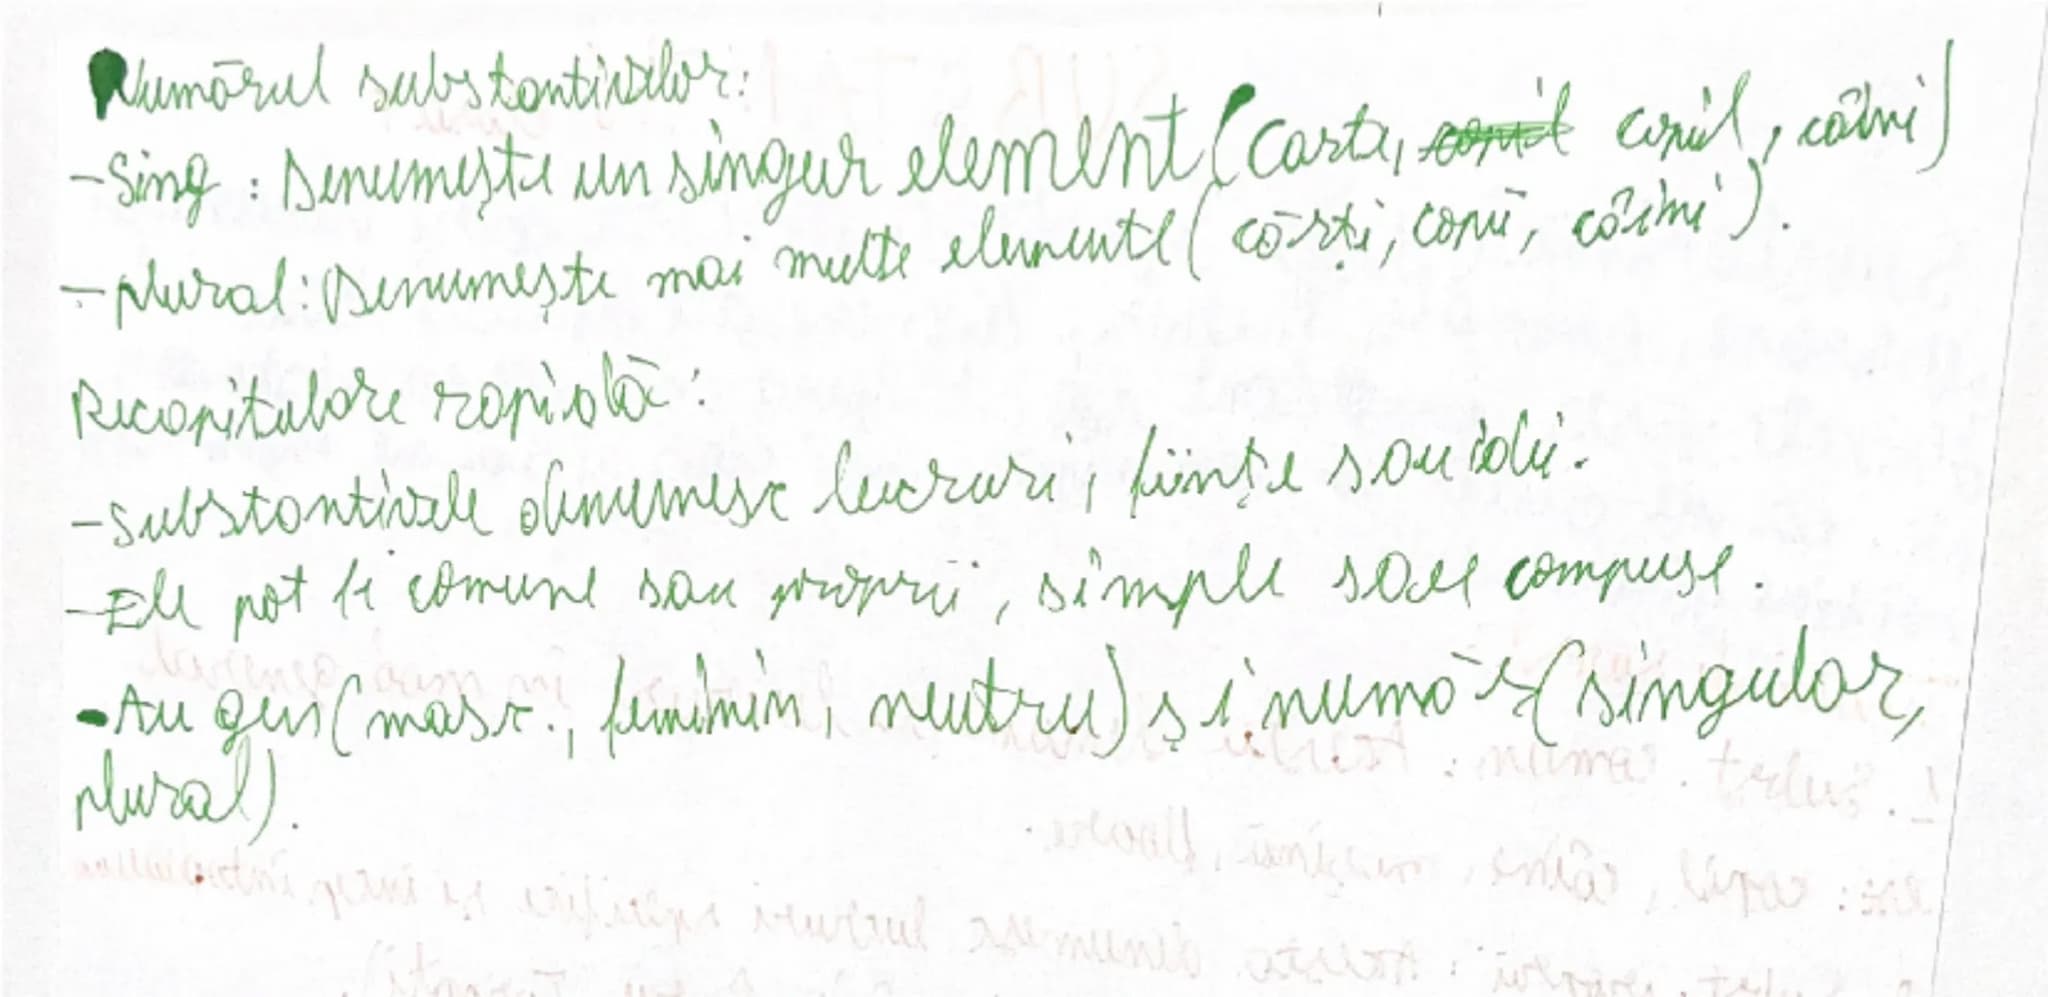 Numărul substantivelor:
-Sing: Denumește un singur element (Carte, copil copil, câini)
-plural: Denumește mai multe elemente (cărți, copii, câini).
Recapitulare rapidă:
-substantivele denumesc lucruri, ființe sau idei.
-Ele pot fi comune sau proprii, simple sau compuse.
-Au gen (masc., feminin, neutru) și număr (singular,
plural).